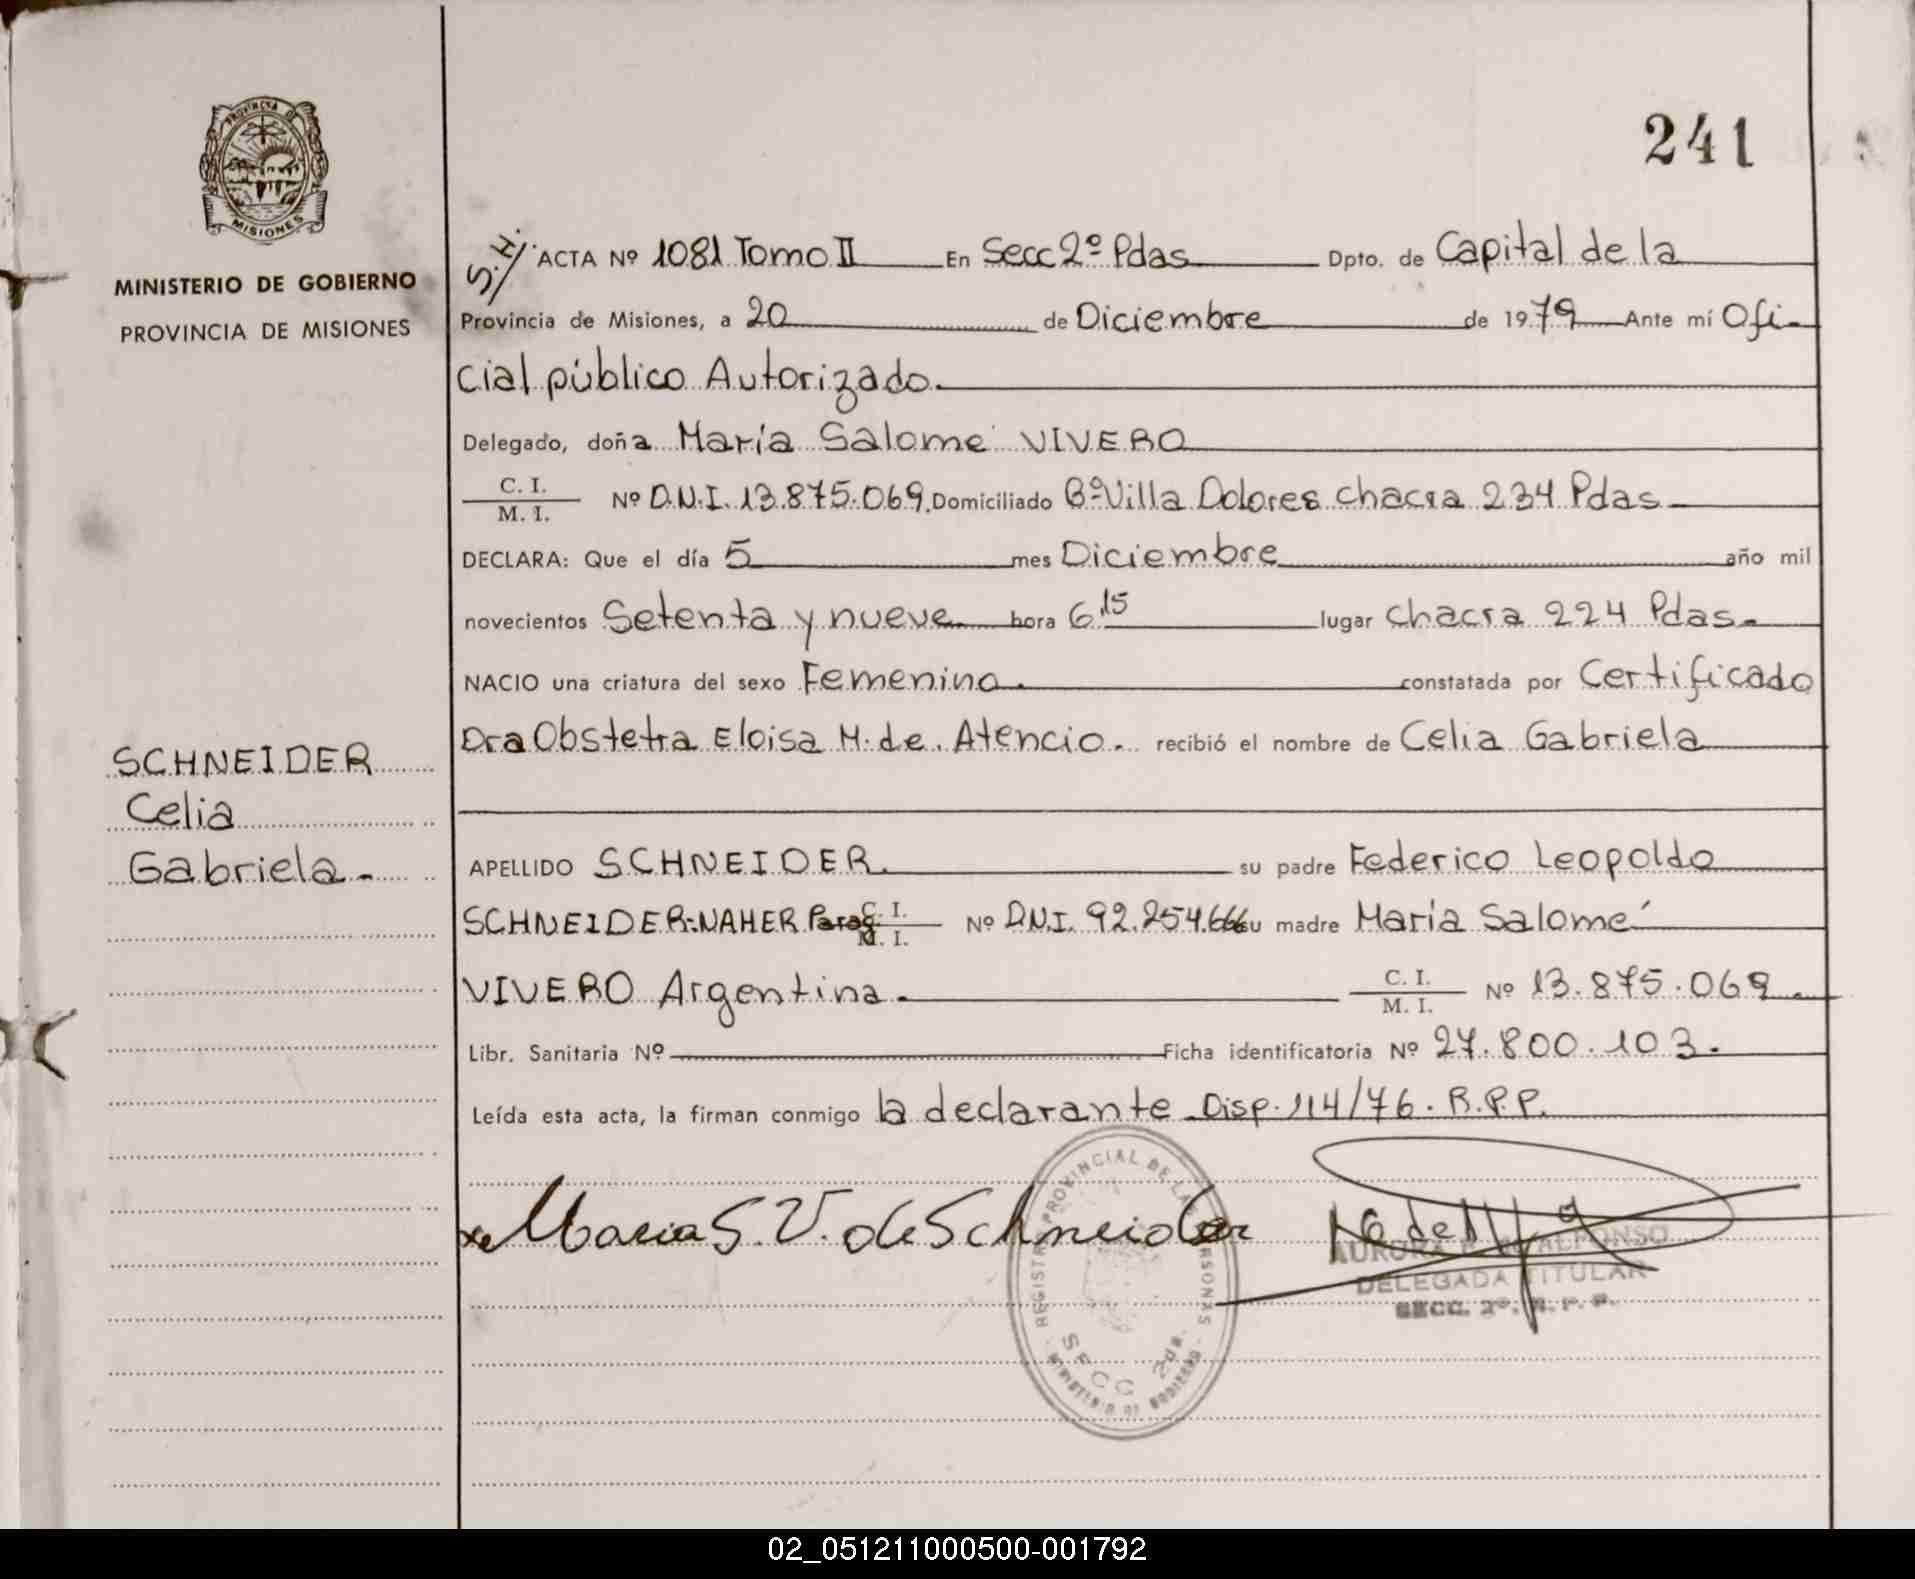 PROVINCIA DE
MISIONES
MINISTERIO DE GOBIERNO
PROVINCIA DE MISIONES
241
S.H. ACTA Nº 1081 Tomo II En Secc 2º Pdas Dpto. de Capital de la
Provincia de Misiones, a 20 de Diciembre de 1979 Ante mí Ofi-
cial público Autorizado.
Delegado, doña María Salomé VIVERO
C. I.
M. I. Nº D.N.I. 13.875.069. Domiciliado Bº Villa Dolores chacra 234 Pdas
DECLARA: Que el día 5 mes Diciembre año mil
novecientos Setenta y nueve hora 6.15 lugar chacra 224 Pdas.
NACIO una criatura del sexo Femenino. constatada por Certificado
Dra Obstetra Eloisa M. de. Atencio. recibió el nombre de Celia Gabriela
SCHNEIDER
Celia
Gabriela.-
APELLIDO SCHNEIDER. su padre Federico Leopoldo
SCHNEIDER-NAHER Parag. C. I. M. I. Nº D.N.I. 92.254.666 su madre María Salomé
VIVERO Argentina. C. I. M. I. Nº 13.875.069.
Libr. Sanitaria Nº Ficha identificatoria Nº 27.800.103.
Leída esta acta, la firman conmigo la declarante Disp. 114/76. R.P.P.
Maria S. V. de Schneider
REGISTRO PROVINCIAL DE LAS PERSONAS
SECC 2da.
MINISTERIO DE GOBIERNO
AURORA ALFONSO
DELEGADA TITULAR
SECC. 2º. R. P. P.
02_051211000500-001792